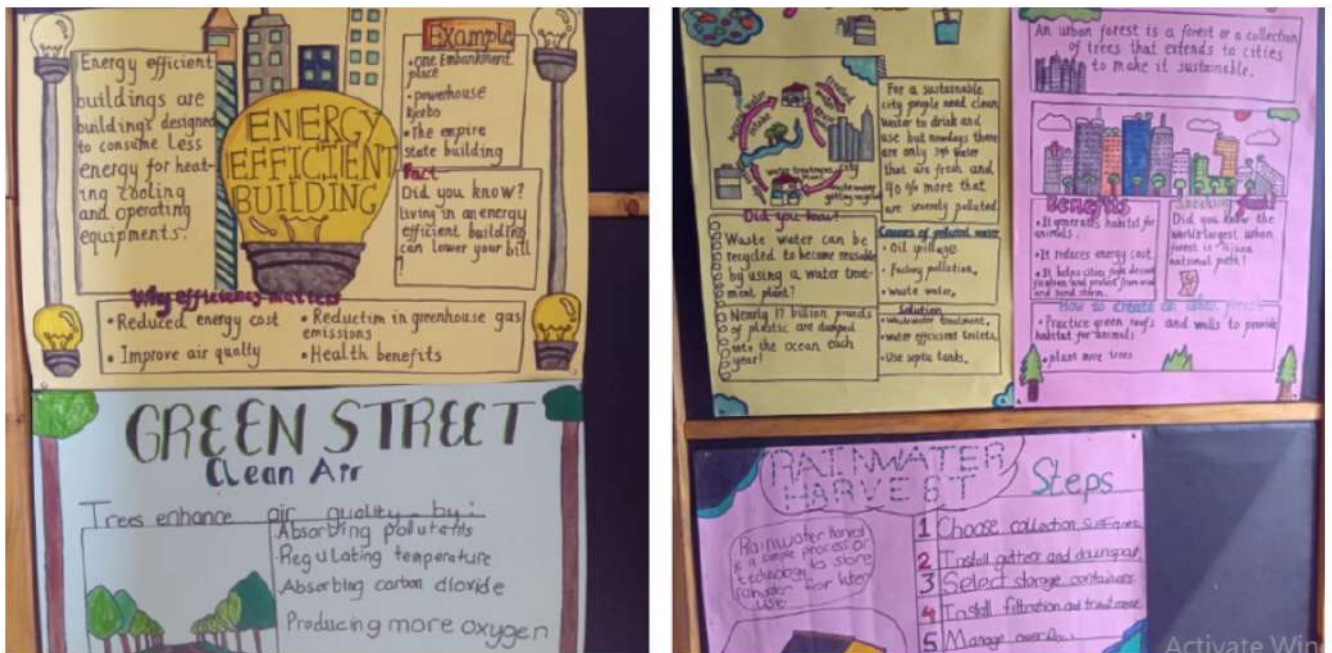 Energy efficient
buildings are
buildings designed
to consume less
energy for heat-
ing cooling
and operating
equipments.
ENERGY
EFFICIENT
BUILDING
Example
• One Embankment
place
• powerhouse
Kjorbo
• The empire
state building
Fact
Did you know?
living in an energy
efficient building
can lower your bill
!
Why efficiency matters
• Reduced energy cost
• Improve air qualty
• Reduction in greenhouse gas
emissions
• Health benefits
GREEN STREET
Clean Air
Trees enhance air quality by:
Absorbing polutents
Regulating temperature
Absorbing carbon dioxide
Producing more oxygen
water treatment
city
For a sustainable
city people need clean
water to drink and
use but nowdays there
are only water
that are fresh and
40 % more that
are severely polluted.
Did you know?
Waste water can be
recycled to become reusable
by using a water treat-
ment plant?
Nearly 17 billion pounds
of plastic are dumped
into the ocean each
year!
Causes of polluted water
• Oil spillage.
• Factory pollution.
• Waste water.
Solution
• wastewater treatment.
• Water efficient toilets.
• Use septic tanks.
An urban forest is a forest or a collection
of trees that extends to cities
to make it sustainable.
Benefits
• It generates habitat for
animals.
• It reduces energy cost
• It helps cities from
and protect from wind
and sand storm.
fact!
Did you know the
world largest urban
forest is Tijuca
national park?
How to create an urban forest
• Practice green roofs and walls to provide
habitat for animals
• plant more trees
RAINWATER
HARVEST
Rainwater harvest
is a simple process or
technology to store
rainwater for later
use
Steps
1 Choose collection surfaces
2 Install gutter and downspout
3 Select storage containers
4 Install filtration and treatment
5 Manage overflow
Activate Win